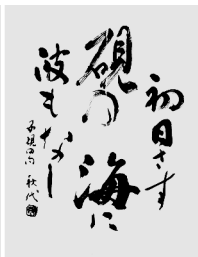 初日さす
硯の海に
波もなし
子規句 秋代